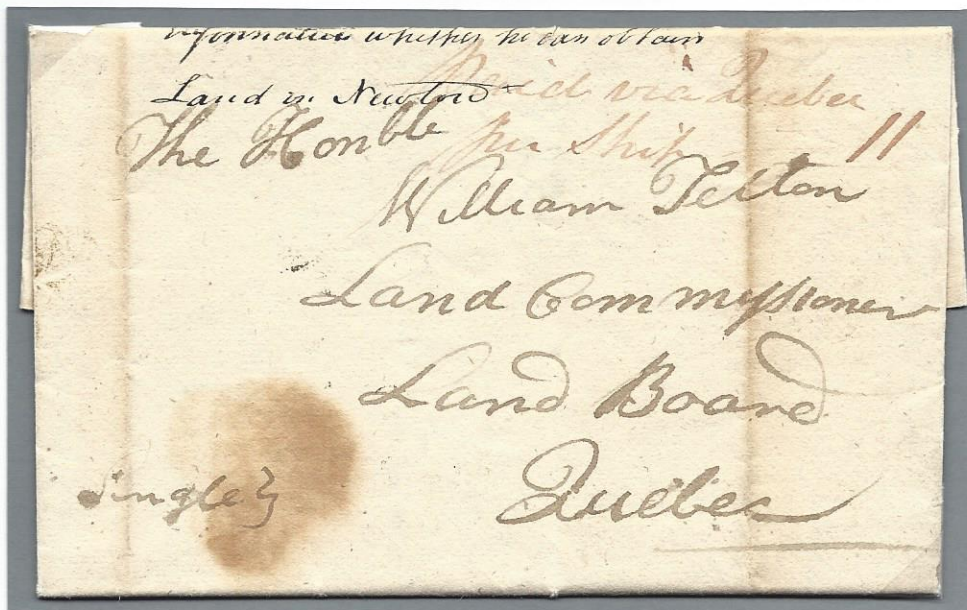 information whether he can obtain
Land in Newton
Paid via Quebec
per Ship 11
The Honble
William Felton
Land Commissioner
Land Board
Quebec
Single